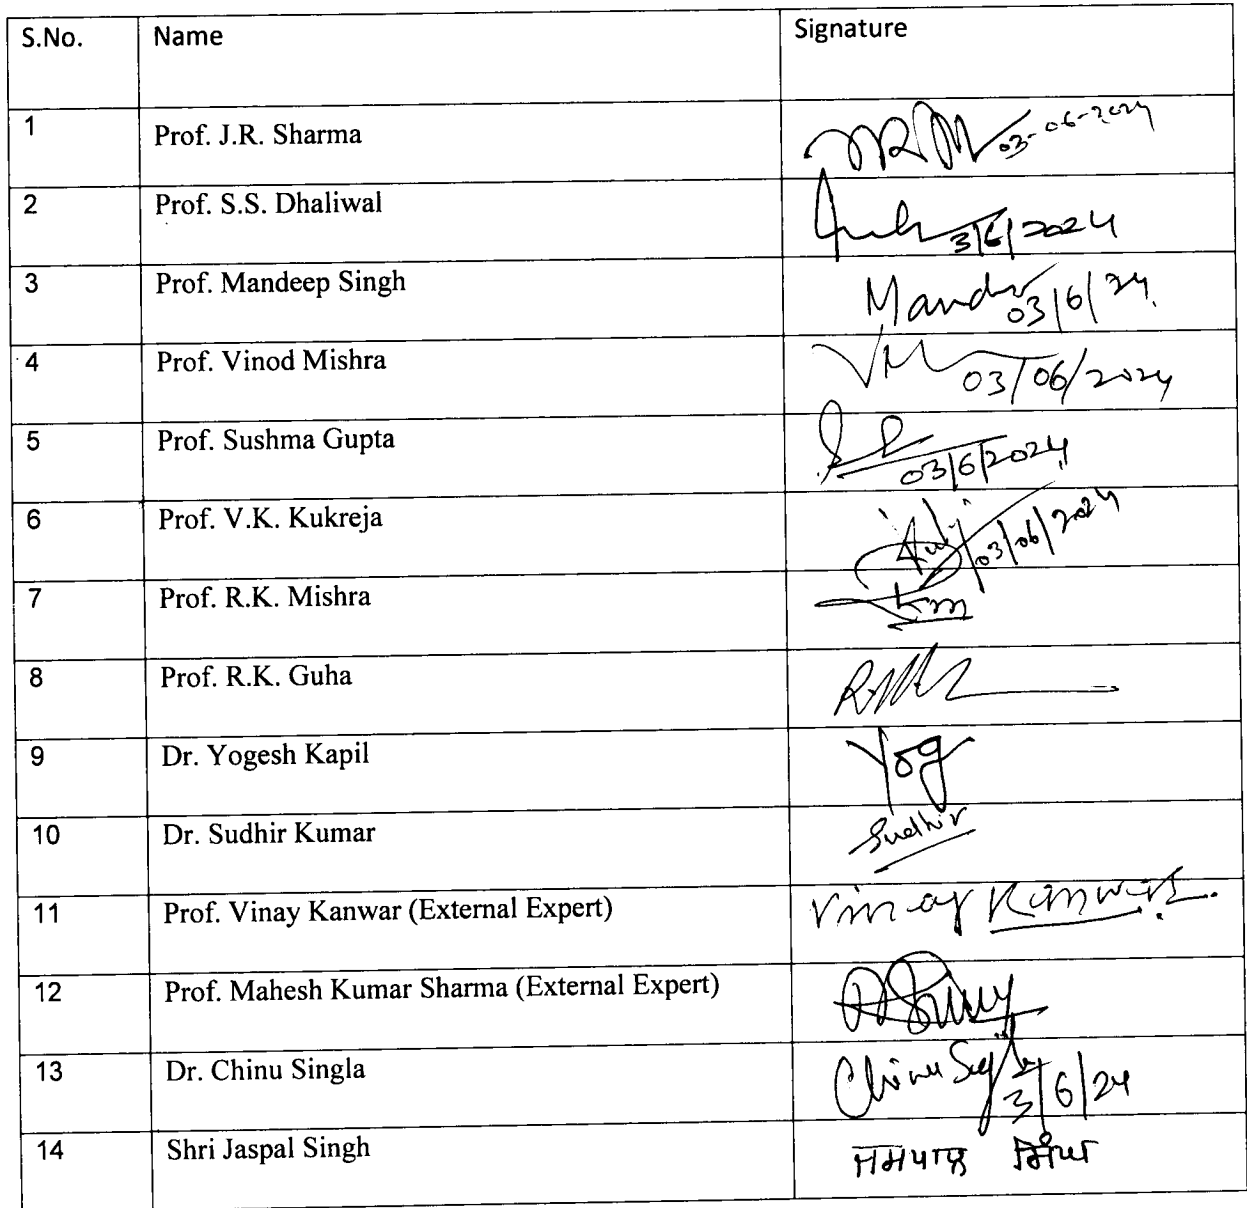 S.No. Name Signature
1 Prof. J.R. Sharma 03-06-2024
2 Prof. S.S. Dhaliwal 3/6/2024
3 Prof. Mandeep Singh 03/6/24
4 Prof. Vinod Mishra 03/06/2024
5 Prof. Sushma Gupta 03/6/2024
6 Prof. V.K. Kukreja 03/06/2024
7 Prof. R.K. Mishra
8 Prof. R.K. Guha
9 Dr. Yogesh Kapil Yog
10 Dr. Sudhir Kumar Sudhir
11 Prof. Vinay Kanwar (External Expert) Vinay Kanwar
12 Prof. Mahesh Kumar Sharma (External Expert)
13 Dr. Chinu Singla Chinu 3/6/24
14 Shri Jaspal Singh ਜਸਪਾਲ ਸਿੰਘ